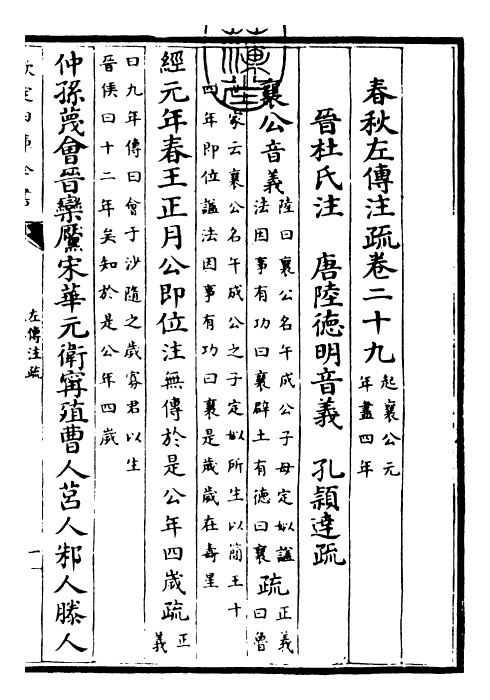 春秋左傳注疏卷二十九
起襄公元
年盡四年
晉杜氏注 唐陸德明音義 孔穎達疏
襄公音義
陸曰襄公名午成公子母定姒謚
法因事有功曰襄辟土有德曰襄
疏
正義
曰魯
世家云襄公名午成公之子定姒所生以簡王十
四年即位謚法因事有功曰襄是歲歲在壽星
經元年春王正月公即位注無傳於是公年四歲疏
正
義
曰九年傳曰會于沙隨之歲寡君以生
晉侯曰十二年矣知於是公年四歲
仲孫蔑會晉欒黶宋華元衛寗殖曹人莒人邾人滕人
左傳注疏
一